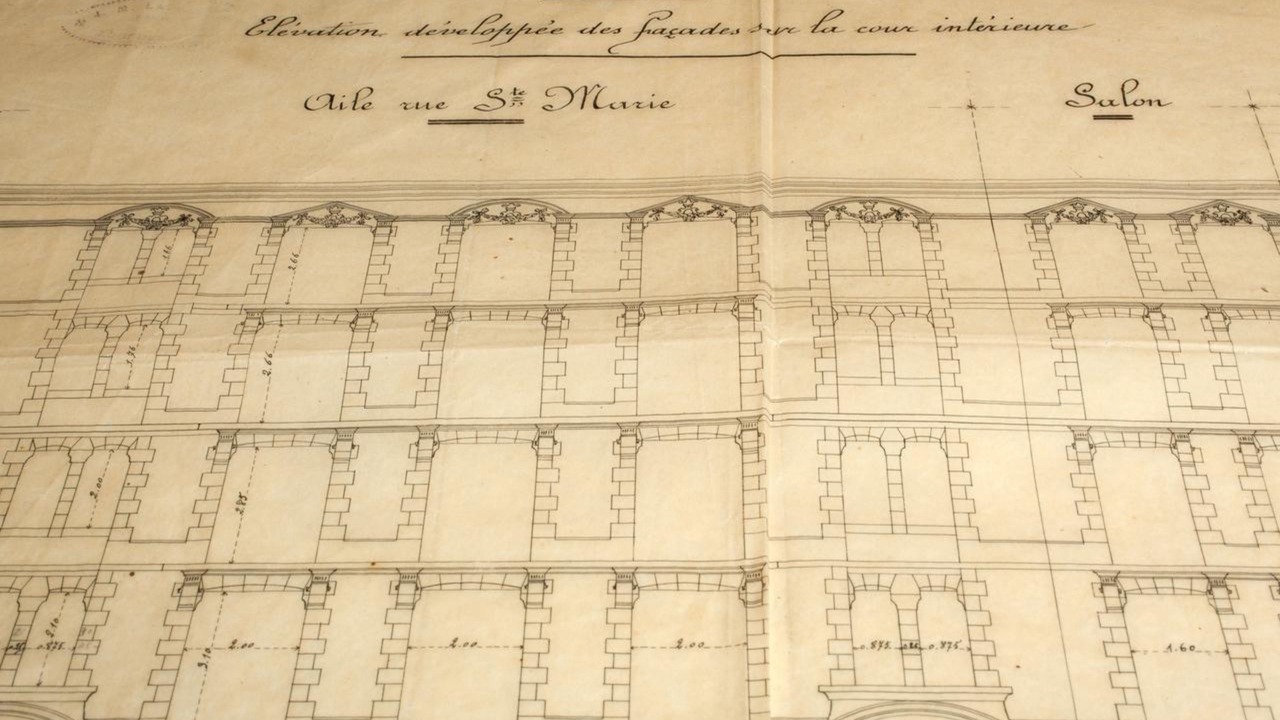 Elévation développée des façades sur la cour intérieure
Aile rue Ste Marie
Salon
1.16
2.66
1.76
2.66
2.00
2.85
2.10
3.10
0.875
2.00
2.00
2.00
0.875
0.875
1.60